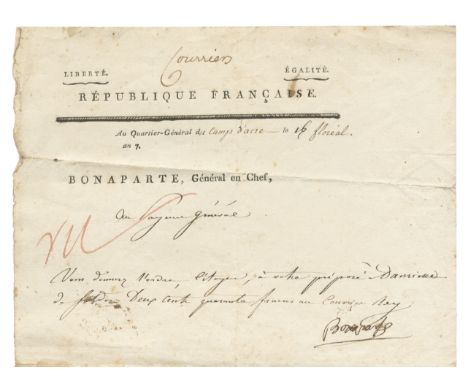 Courriers
LIBERTÉ. ÉGALITÉ.
RÉPUBLIQUE FRANÇAISE.
Au Quartier-Général de Camp d'acre le 16 floréal.
an 7.
BONAPARTE, Général en Chef,
Au payeur général
Vous donnerez l'ordre, Citoyen, à votre préposé à Damiette
de Deux Cent quarante francs au Courrier
Bonaparte